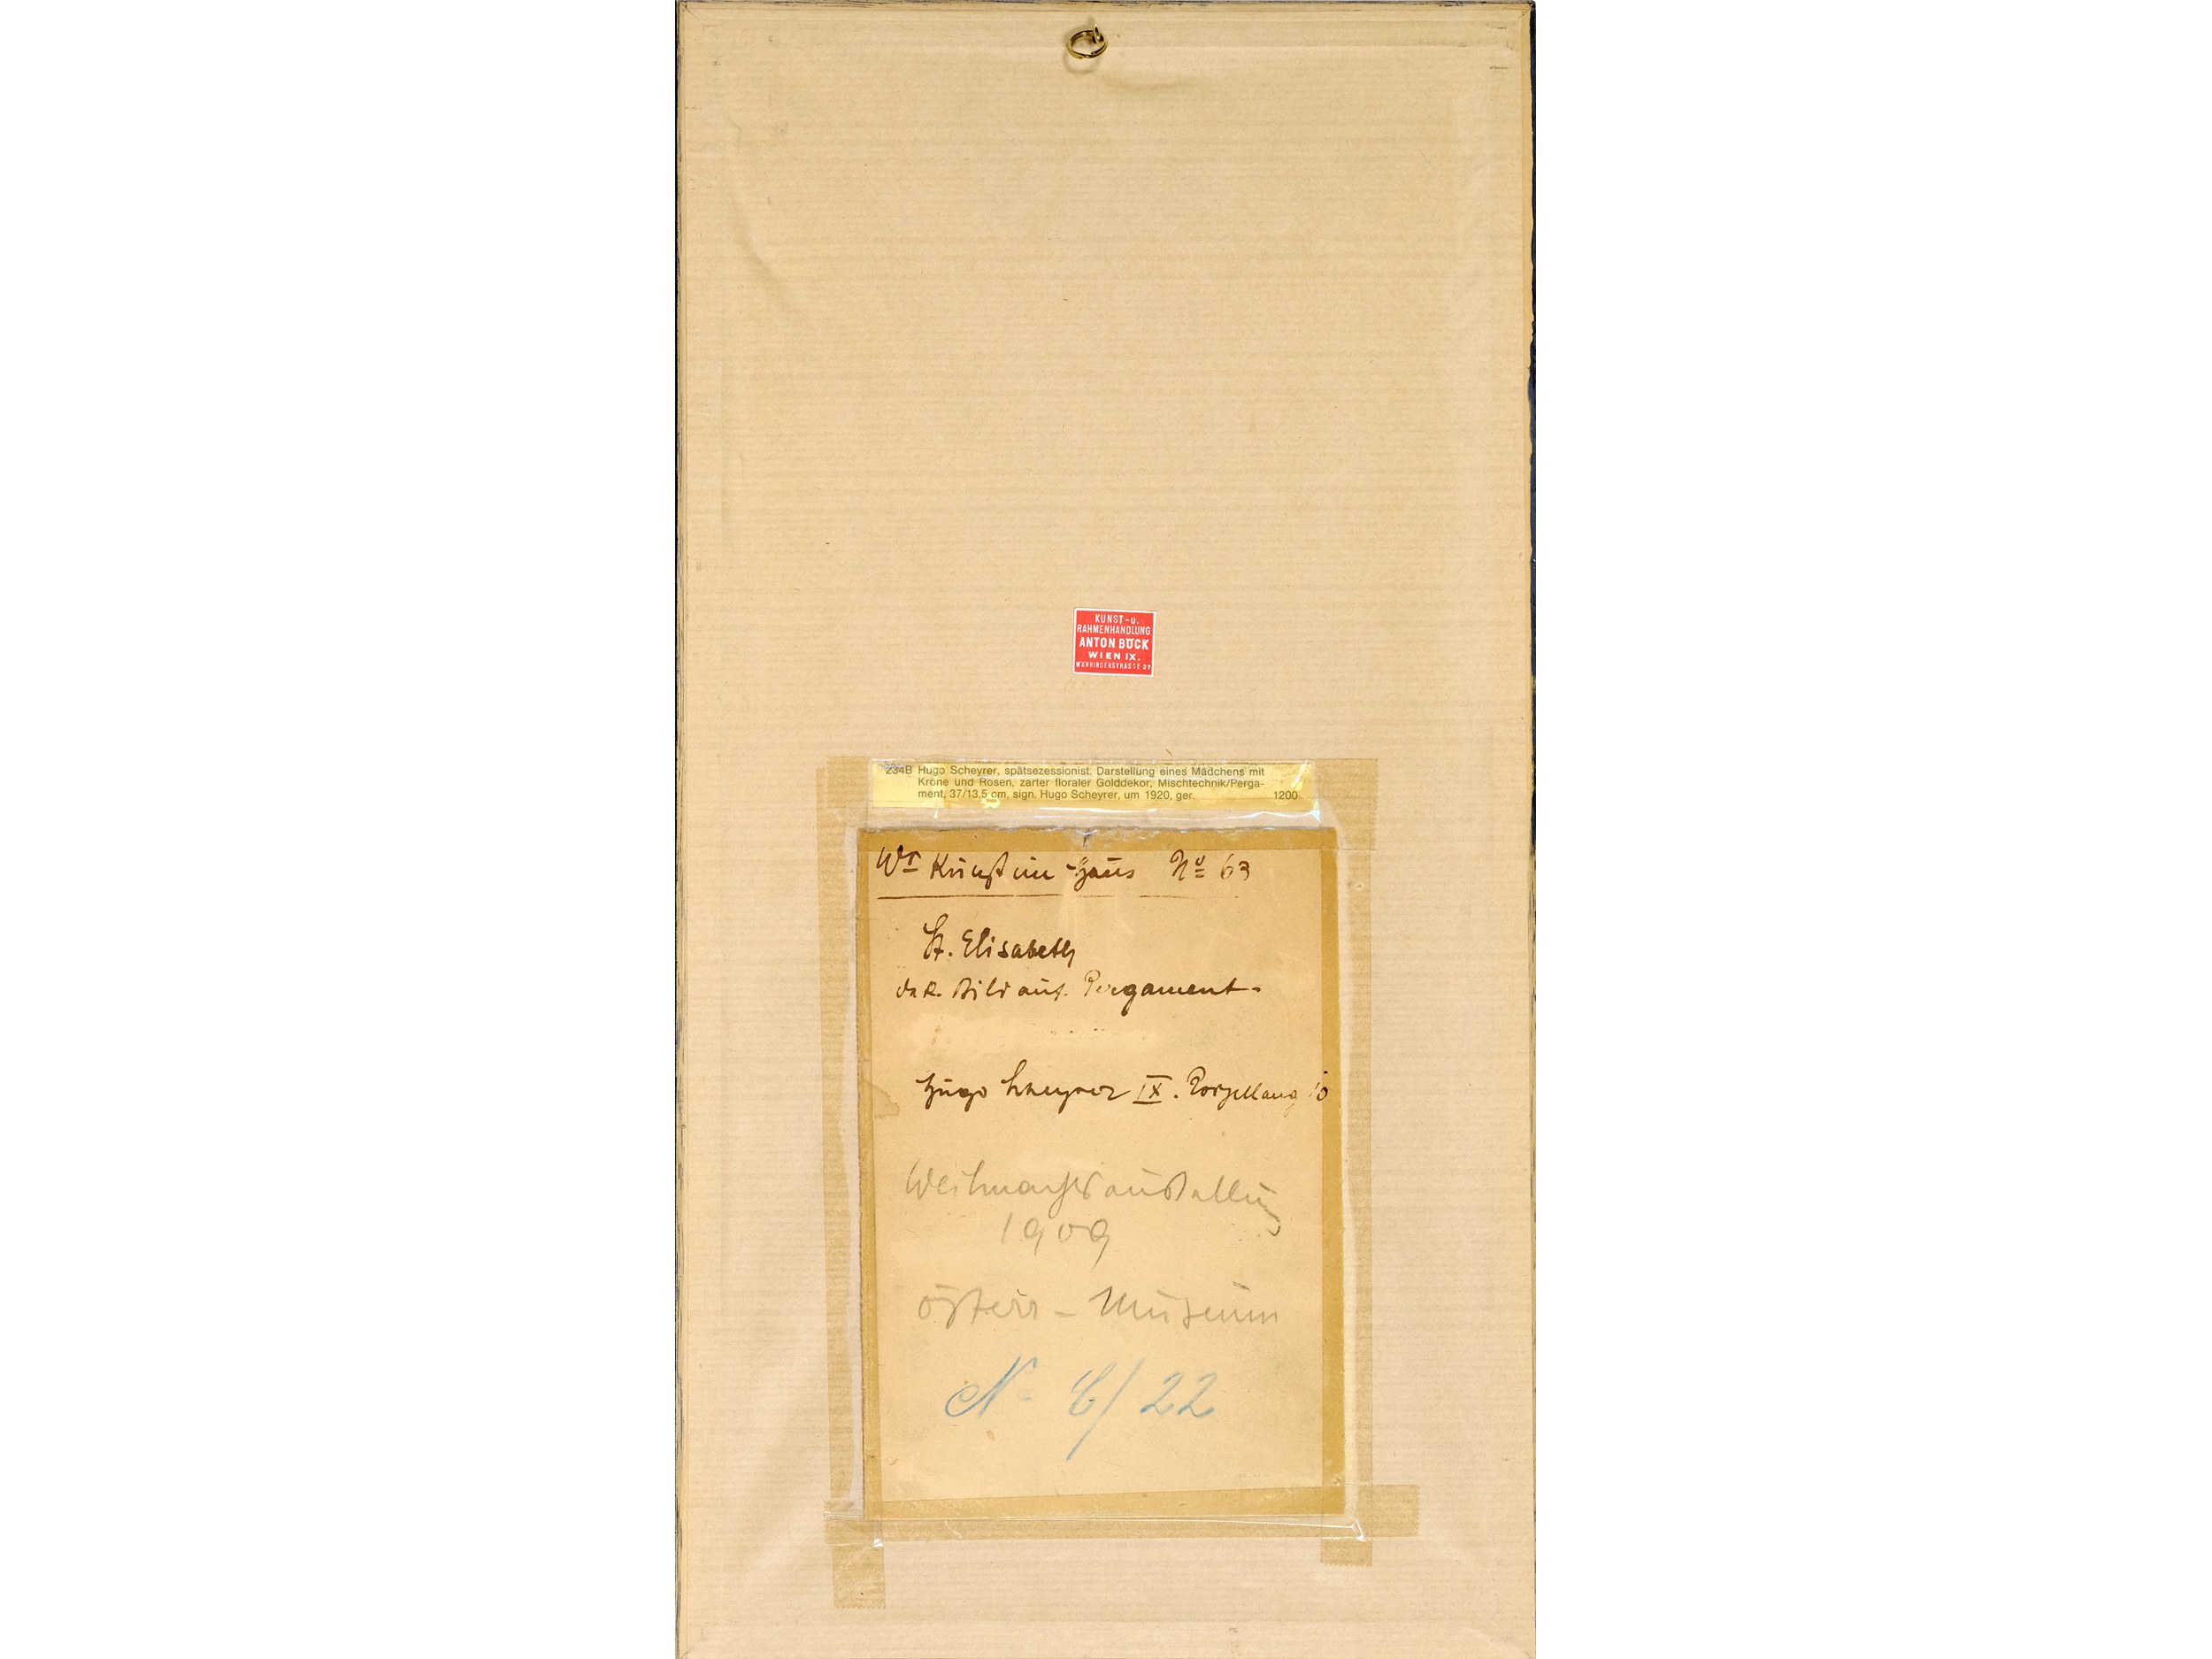 KUNST-u.
RAHMENHANDLUNG
ANTON BÖCK
WIEN IX.
WÄHRINGERSTRASSE
234B Hugo Scheyrer, spätsezessionist. Darstellung eines Mädchens mit
Krone und Rosen, zarter floraler Golddekor, Mischtechnik/Perga-
ment, 37/13,5 cm, sign. Hugo Scheyrer, um 1920, ger. 1200
Wr Kunst im Haus No 63
St. Elisabeth
Bild auf Pergament.
Hugo Scheyrer IX. 10
Weihnachtsausstellung
1909
österr - Museum
/ 22